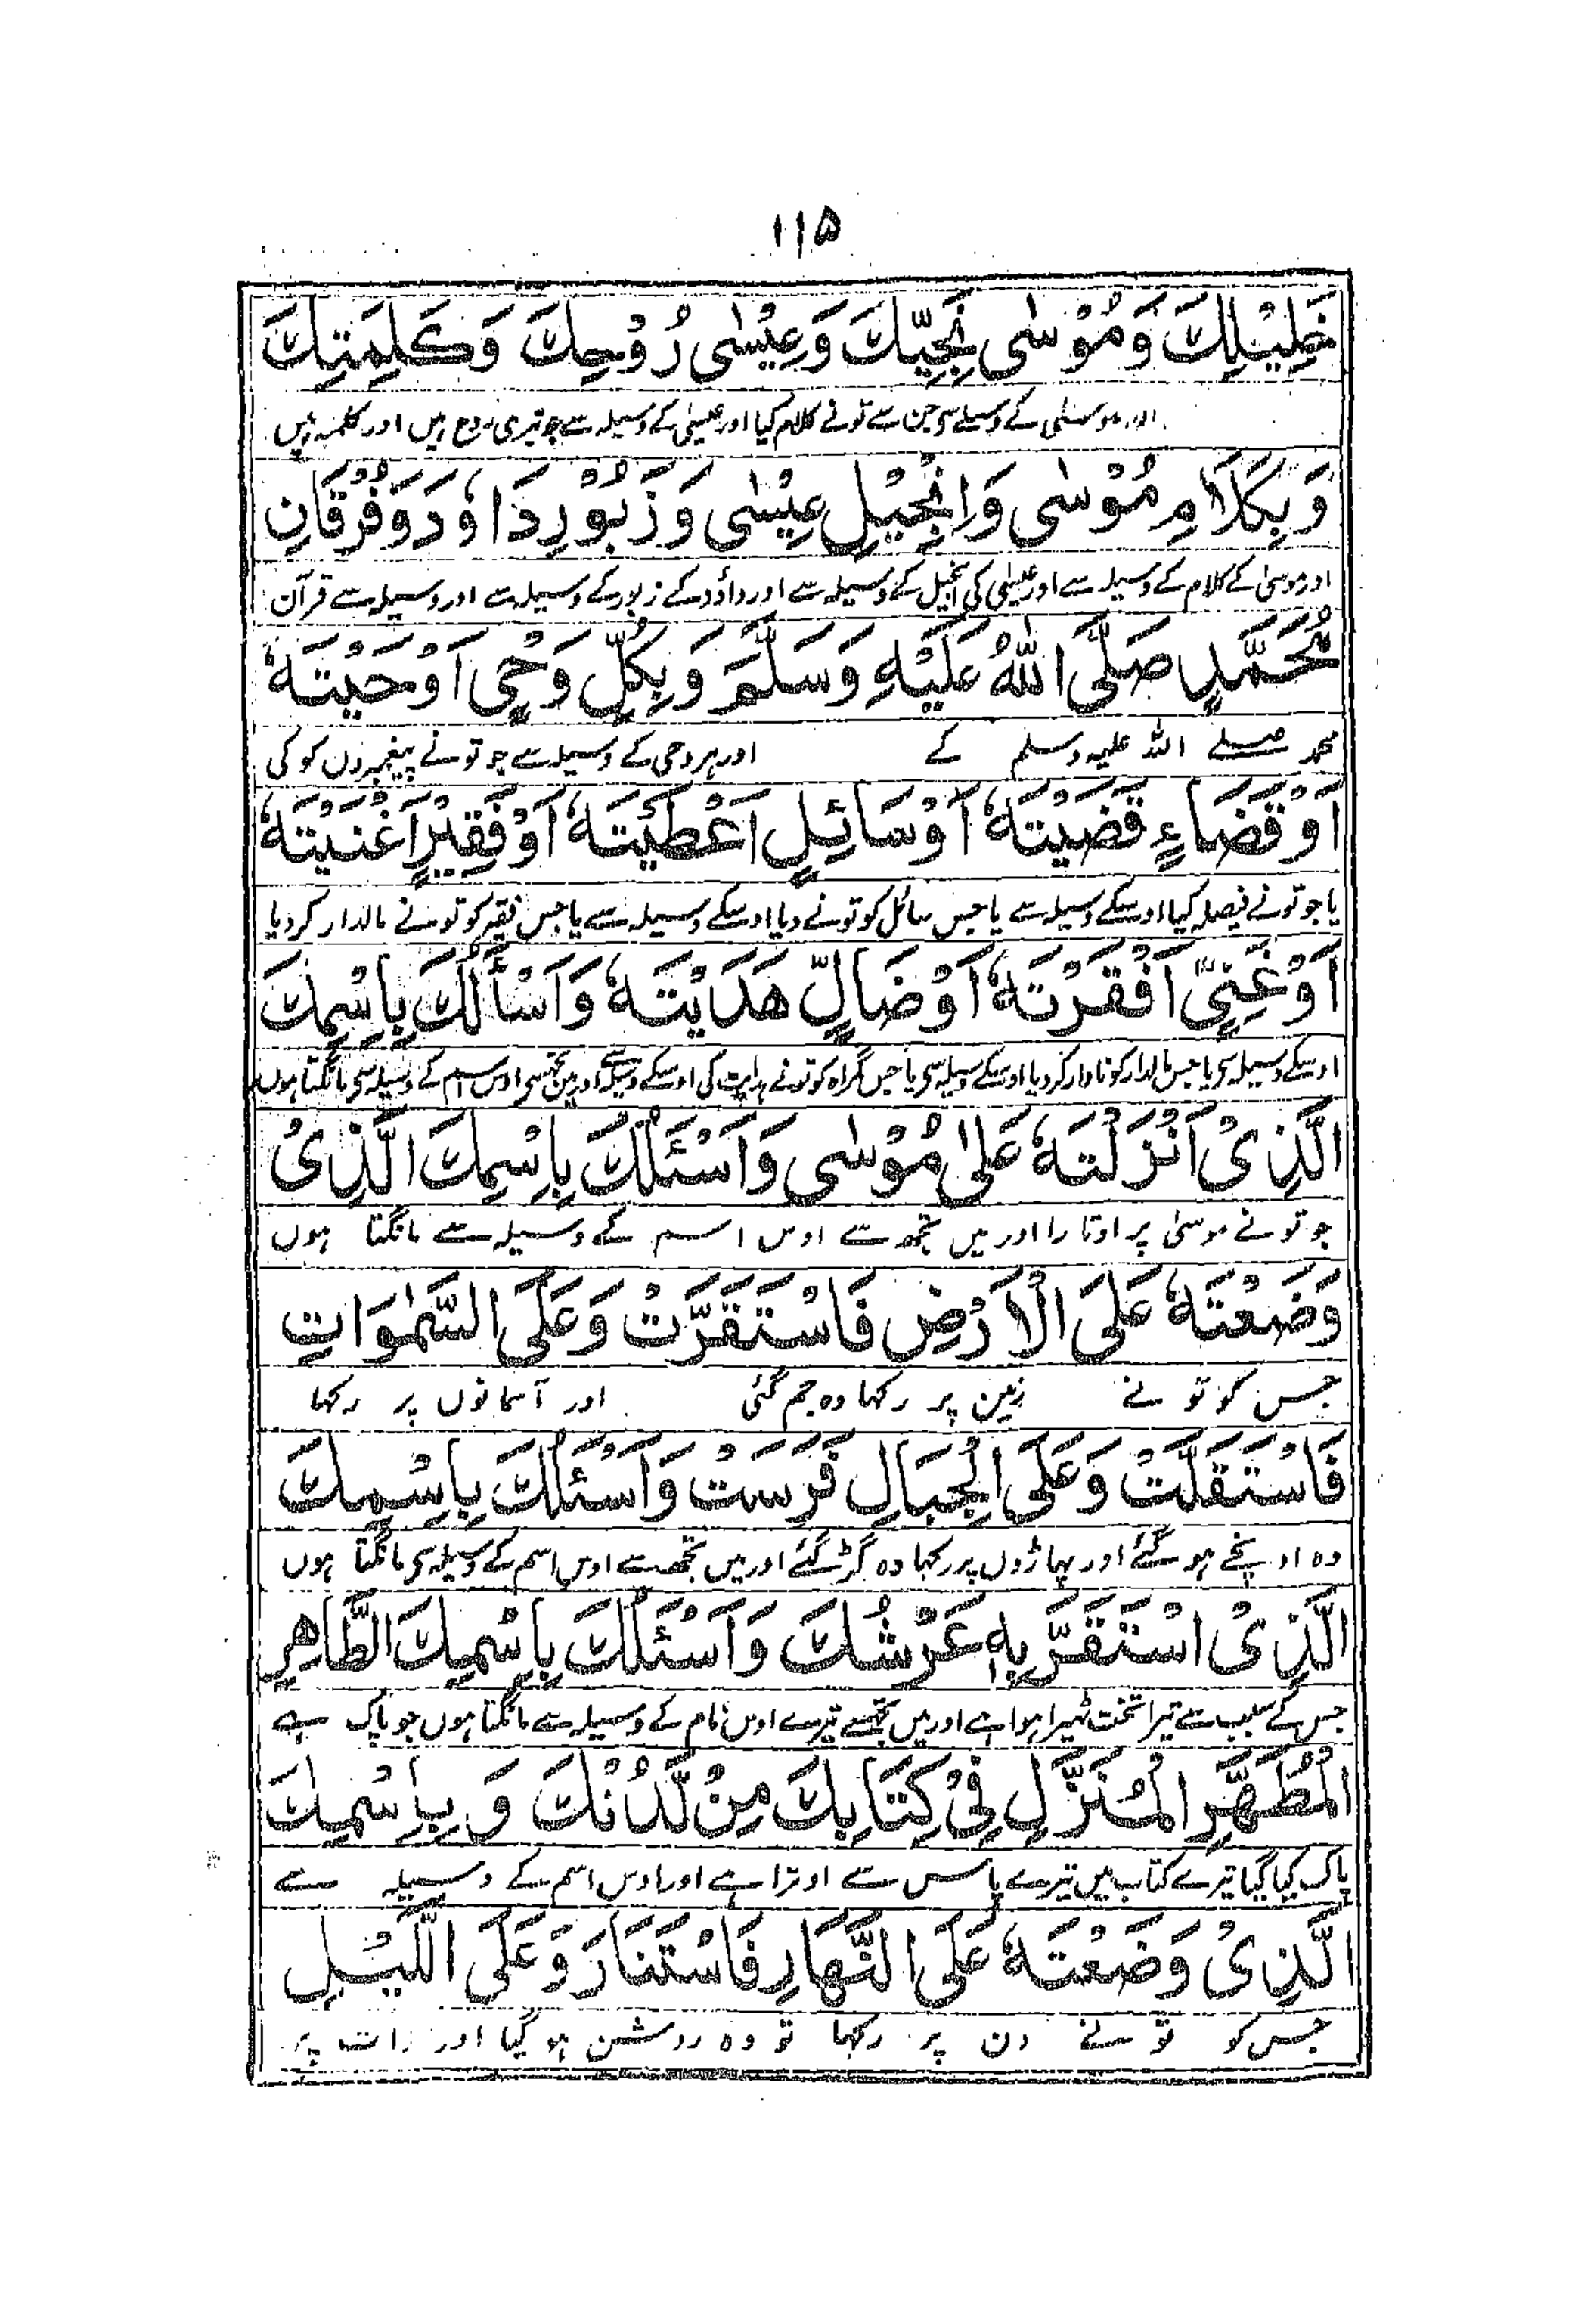 ۱۱۵
خَلِيْلِكَ وَمُوْسٰى نَجِيِّكَ وَعِيْسٰى رُوْحِكَ وَكَلِمَتِكَ
اور موسیٰ کے وسیلے سی جن سے تونے کلام کیا اور عیسیٰ کے وسیلہ سے جو تیری روح ہیں اور کلمہ ہیں
وَبِكَلَامِ مُوْسٰى وَاِنْجِيْلِ عِيْسٰى وَزَبُوْرِ دَاوٗدَ وَفُرْقَانِ
اور موسیٰ کے کلام کے وسیلہ سے اور عیسیٰ کی انجیل کے وسیلہ سے اور داؤد کے زبور کے وسیلہ سے اور وسیلہ سے قرآن
مُحَمَّدٍ صَلَّى اللّٰهُ عَلَيْهِ وَسَلَّمَ وَبِكُلِّ وَحْيٍ اَوْحَيْتَهٗ
محمد صلے اللہ علیہ وسلم کے اور ہر وحی کے وسیلہ سے جو تو نے پیغمبروں کو کی
اَوْ قَضَاءٍ قَضَيْتَهٗ اَوْ سَائِلٍ اَعْطَيْتَهٗ اَوْ فَقِيْرٍ اَغْنَيْتَهٗ
یا جو تو نے فیصلہ کیا اوسکے وسیلہ سے یا جس سائل کو تو نے دیا اوسکے وسیلہ سے یا جس فقیر کو تو نے مالدار کردیا
اَوْ غَنِيٍّ اَفْقَرْتَهٗ اَوْ ضَالٍّ هَدَيْتَهٗ وَاَسْأَلُكَ بِاسْمِكَ
اوسکے وسیلہ سی یا جس مالدار کو نادار کردیا اوسکے وسیلہ سی یا جس گمراہ کو تونے ہدایت کی اوسکے وسیلہ سے اور میں تجھسی اوس اسم کے وسیلہ سی مانگتا ہوں
الَّذِىْ اَنْزَلْتَهٗ عَلٰى مُوْسٰى وَاَسْئَلُكَ بِاِسْمِكَ الَّذِىْ
جو تو نے موسیٰ پر اوتارا اور میں تجھ سے اوس اسم کے وسیلہ سے مانگتا ہوں
وَضَعْتَهٗ عَلَى الْاَرْضِ فَاسْتَقَرَّتْ وَعَلَى السَّمٰوَاتِ
جس کو تو نے زمین پر رکہا وہ جم گئی اور آسمانوں پر رکہا
فَاسْتَقَلَّتْ وَعَلَى الْجِبَالِ فَرَسَتْ وَاَسْئَلُكَ بِاِسْمِكَ
وہ اونچے ہو گئے اور پہاڑوں پر رکہا وہ گڑ گئے اور میں تجھ سے اوس اسم کے وسیلہ سی مانگتا ہوں
الَّذِىْ اسْتَقَرَّ بِهٖ عَرْشُكَ وَاَسْئَلُكَ بِاِسْمِكَ الطَّاهِرِ
جس کے سبب سے تیرا تخت ٹہیرا ہوا ہے اور میں تجھسے تیرے اوس نام کے وسیلہ سے مانگتا ہوں جو پاک ہے
الْمُطَهَّرِ الْمُنَزَّلِ فِىْ كِتَابِكَ مِنْ لَّدُنْكَ وَبِاِسْمِكَ
پاک کیا گیا تیرے کتاب میں تیرے پاس سے اوترا ہے اور اوس اسم کے وسیلہ سے
الَّذِىْ وَضَعْتَهٗ عَلَى النَّهَارِ فَاسْتَنَارَ وَعَلَى اللَّيْلِ
جس کو تو نے دن پر رکہا تو وہ روشن ہو گیا اور رات پر